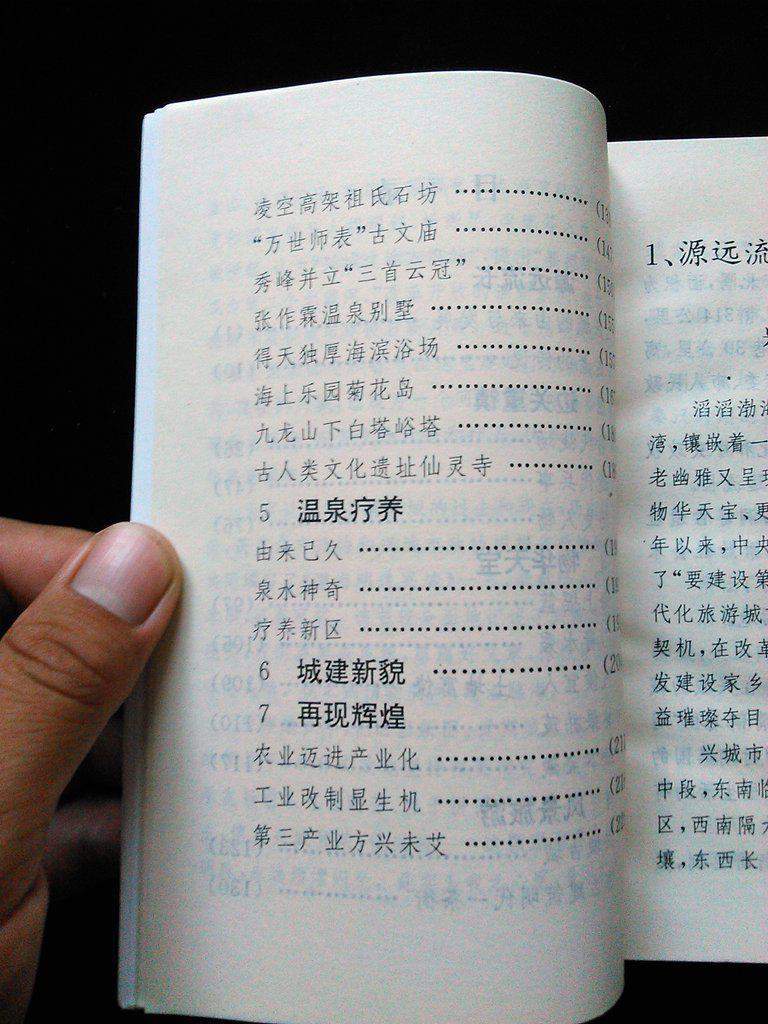 凌空高架祖氏石坊 ………………… (13
“万世师表”古文庙 ………………… (147
秀峰并立“三首云冠” ……………… (150
张作霖温泉别墅 …………………… (155
得天独厚海滨浴场 ………………… (157
海上乐园菊花岛 …………………… (16
九龙山下白塔峪塔 ………………… (18
古人类文化遗址仙灵寺 …………… (18
5 温泉疗养
由来已久 …………………………… (19
泉水神奇 …………………………… (19
疗养新区 …………………………… (19
6 城建新貌 ………………………… (20
7 再现辉煌
农业迈进产业化 …………………… (21
工业改制显生机 …………………… (21
第三产业方兴未艾 ………………… (2
1、源远流
滔滔渤海
湾，镶嵌着一
老幽雅又呈现
物华天宝、更
年以来，中央
了“要建设第
代化旅游城
契机，在改革
发建设家乡
益璀璨夺目
兴城市
中段，东南临
区，西南隔
壤，东西长